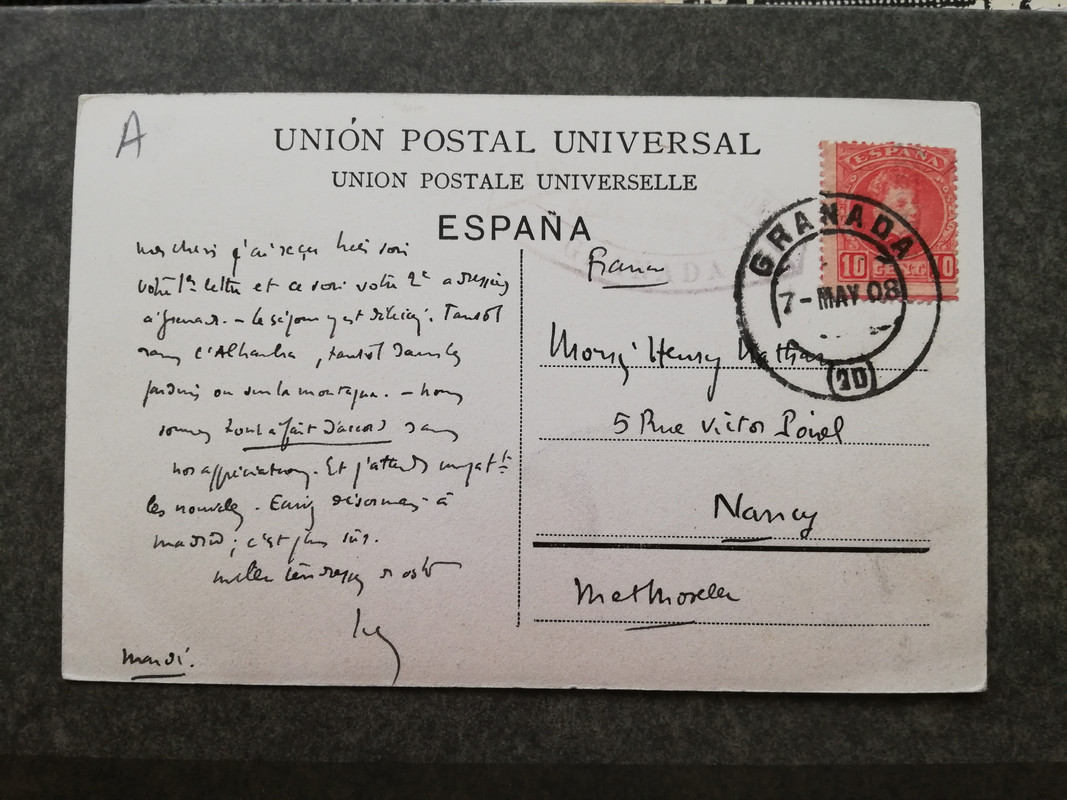 A
UNIÓN POSTAL UNIVERSAL
UNION POSTALE UNIVERSELLE
ESPAÑA
mes chéris j'ai reçu hier soir
votre 1re lettre et ce soir votre 2e adressées
à Grenade. – le séjour y est délicieux. Tantôt
dans l'Alhambra, tantôt dans les
jardins ou sur la montagne. – nous
sommes tout à fait d'accord dans
nos appréciations. Et j'attends
les nouvelles. Ecrivez désormais à
Madrid ; c'est plus sûr.
mille tendresses
mardi.
ESPAÑA
10 CENT 10
GRANADA
7-MAY 08
GRANADA
France
Henry
5 Rue Victor Poirel
Nancy
Met Moselle